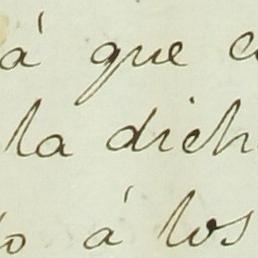 á que
la dich
o á los